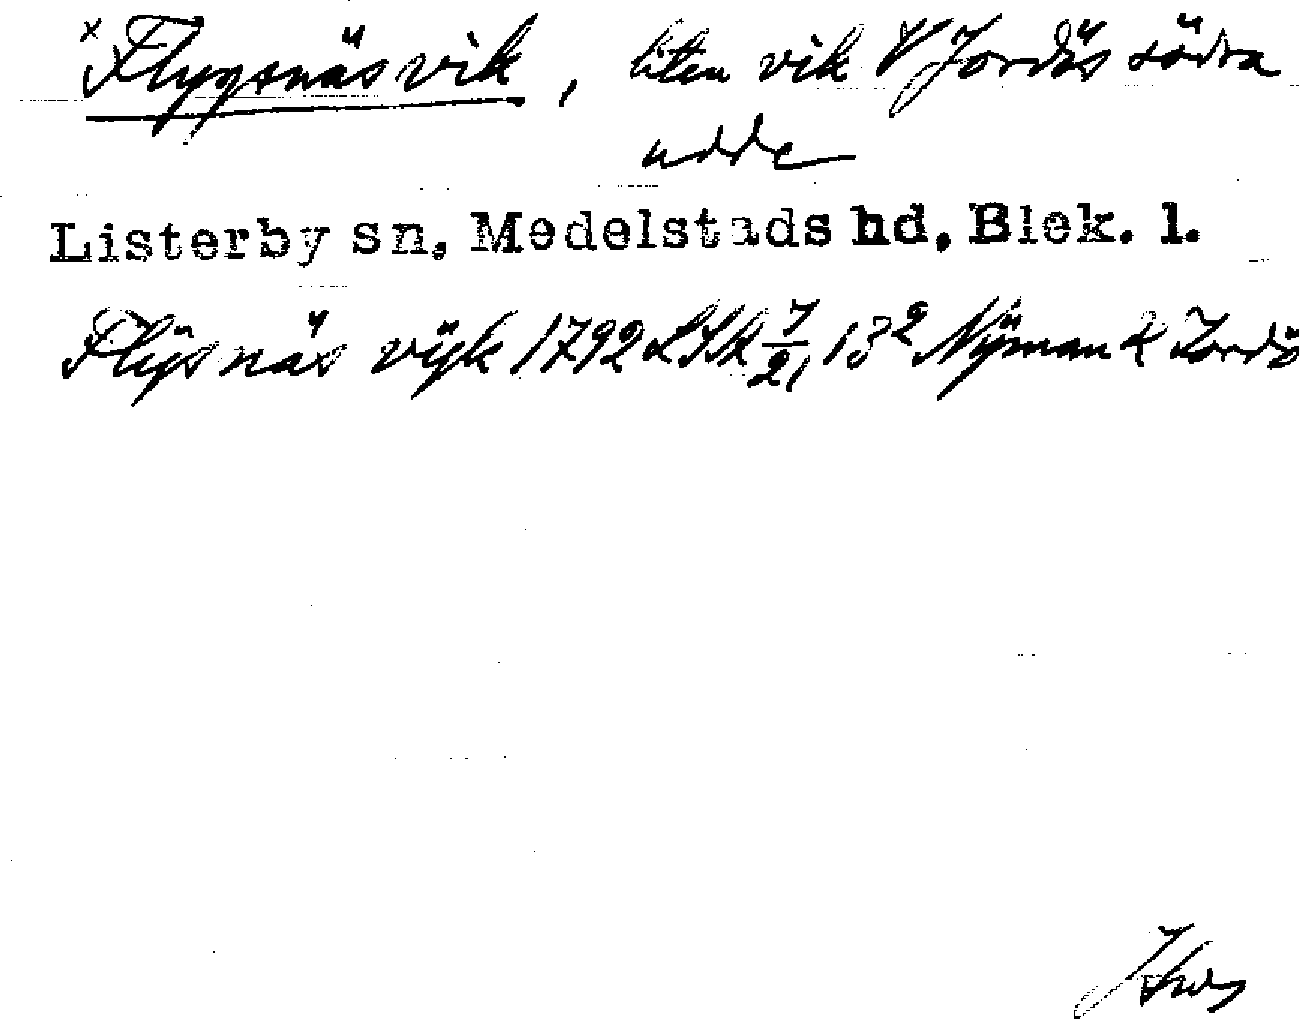 x Flygsnäsvik, liten vik V Jordös södra
udde
Listerby sn, Medelstads hd, Blek. l.
Flÿsnäs vÿk 1792 LSk 7/21, 13² Nÿman K Jordö